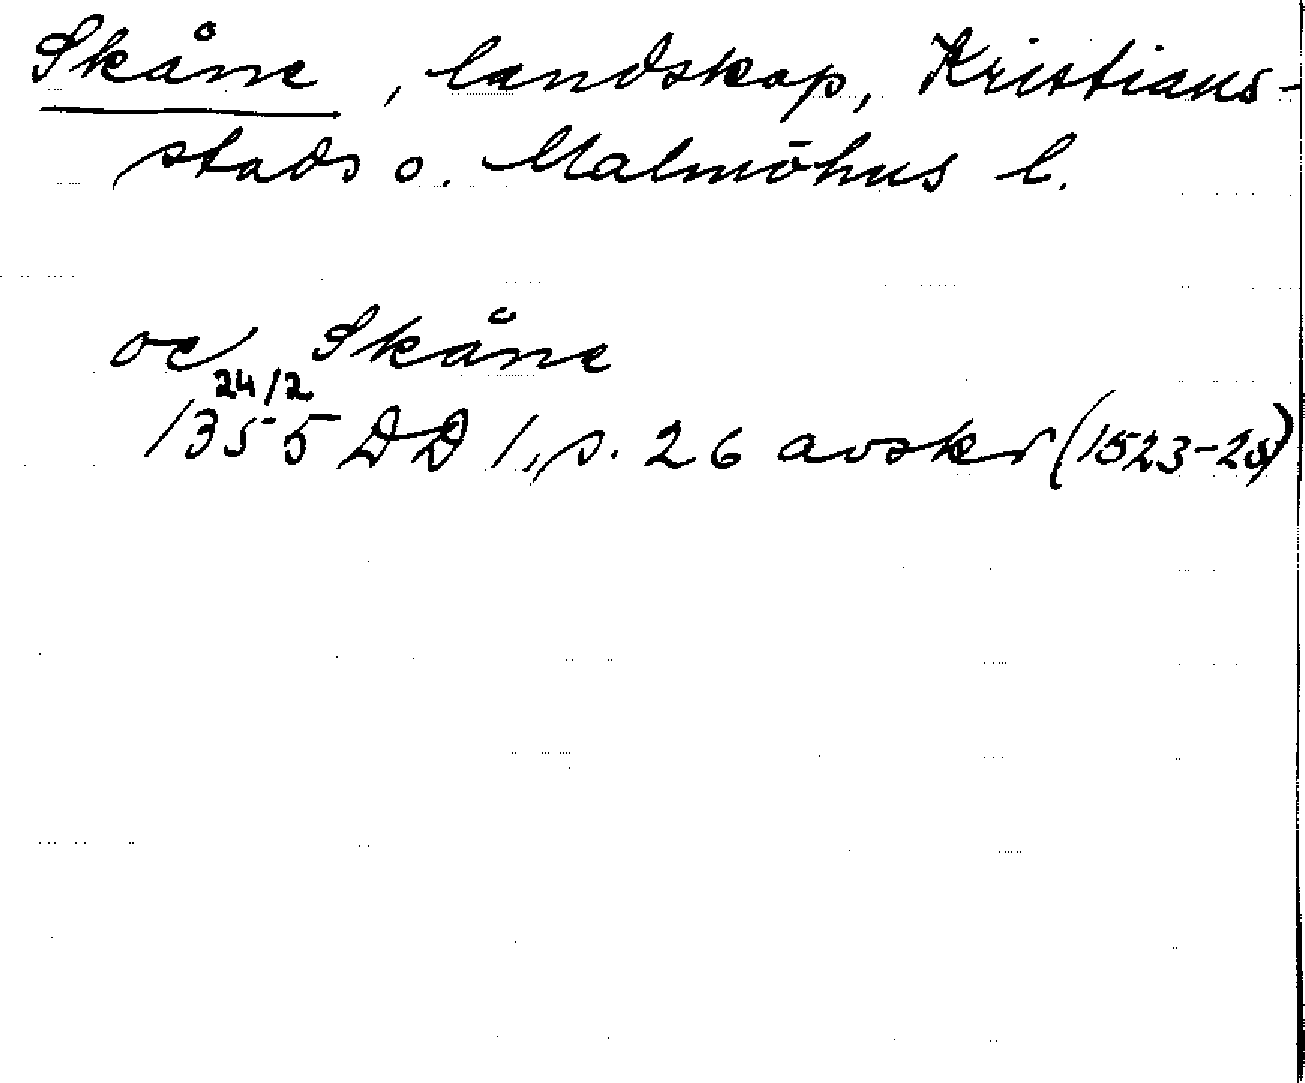 Skåne, landskap, Kristians-
stads o. Malmöhus l.
oc Skåne
24/2
1355 DD 1, s. 26 avskr (1523-25)